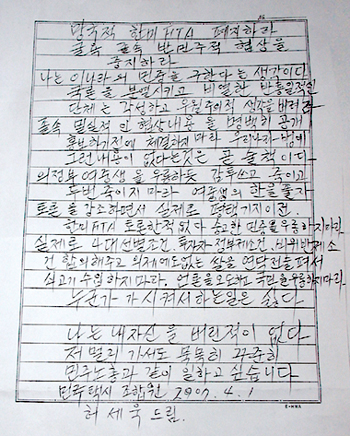 망국적 한미FTA 폐지하라
굴욕 졸속 반민주적 협상을
중지하라
나는 이나라의 민중을 구한다는 생각이다
국론을 분열시키고 비열한 반통일적인
단체는 각성하고 우월주의적 생각을 버려라
졸속 밀실적인 협상내용을 명백히 공개
홍보하기전에 체결하지마라 우리나라 법에
그런내용이 없다는것은 곧 술책이다
의정부 여중생을 우롱하듯 감투쓰고 죽이고
두번 죽이지마라 여중생의 한을 풀자
토론을 강조하면서 실제로 평택기지이전
한미FTA 토론한적 없다 숭고한 민중을 우롱하지마라
실제로 4대선별조건, 투자자 정부제소건, 비위반제소
건 합의해주고 의제에도없는 쌀을 연막전술펴서
쇠고기 수입하지마라. 언론을 오도하고 국민을 우롱하지마라
누군가가 시켜서하는일은 싫다
나는 내자신을 버린적이 없다
저 멀리 가서도 묵묵히 꾸준히
민주노동과 같이 일하고 싶습니다
민주택시 조합원 2007. 4. 1
허세욱 드림.